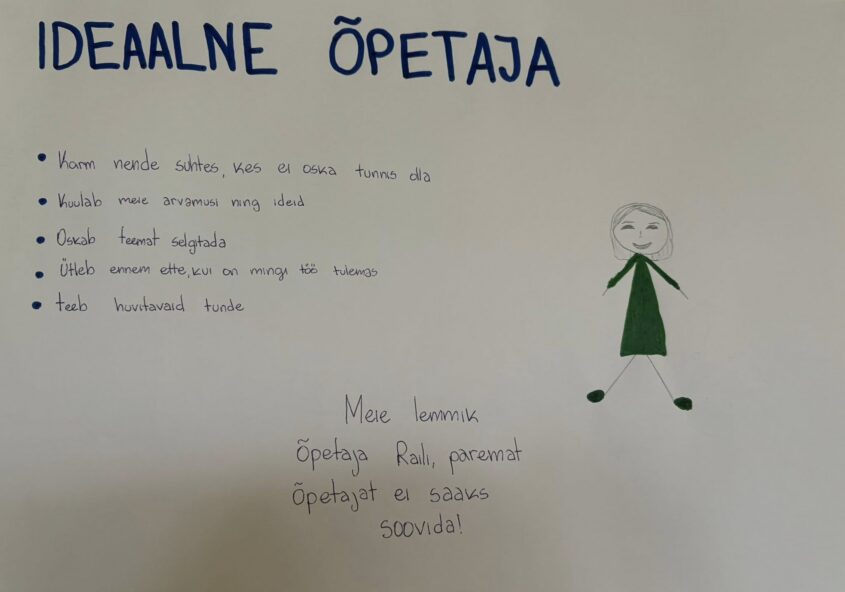 IDEAALNE ÕPETAJA
• Karm nende suhtes, kes ei oska tunnis olla
• Kuulab meie arvamusi ning ideid
• Oskab teemat selgtada
• Ütleb ennem ette, kui on mingi töö tulemas
• teeb huvitavaid tunde
Meie lemmik
Õpetaja Raili, paremat
õpetajat ei saaks
soovida!